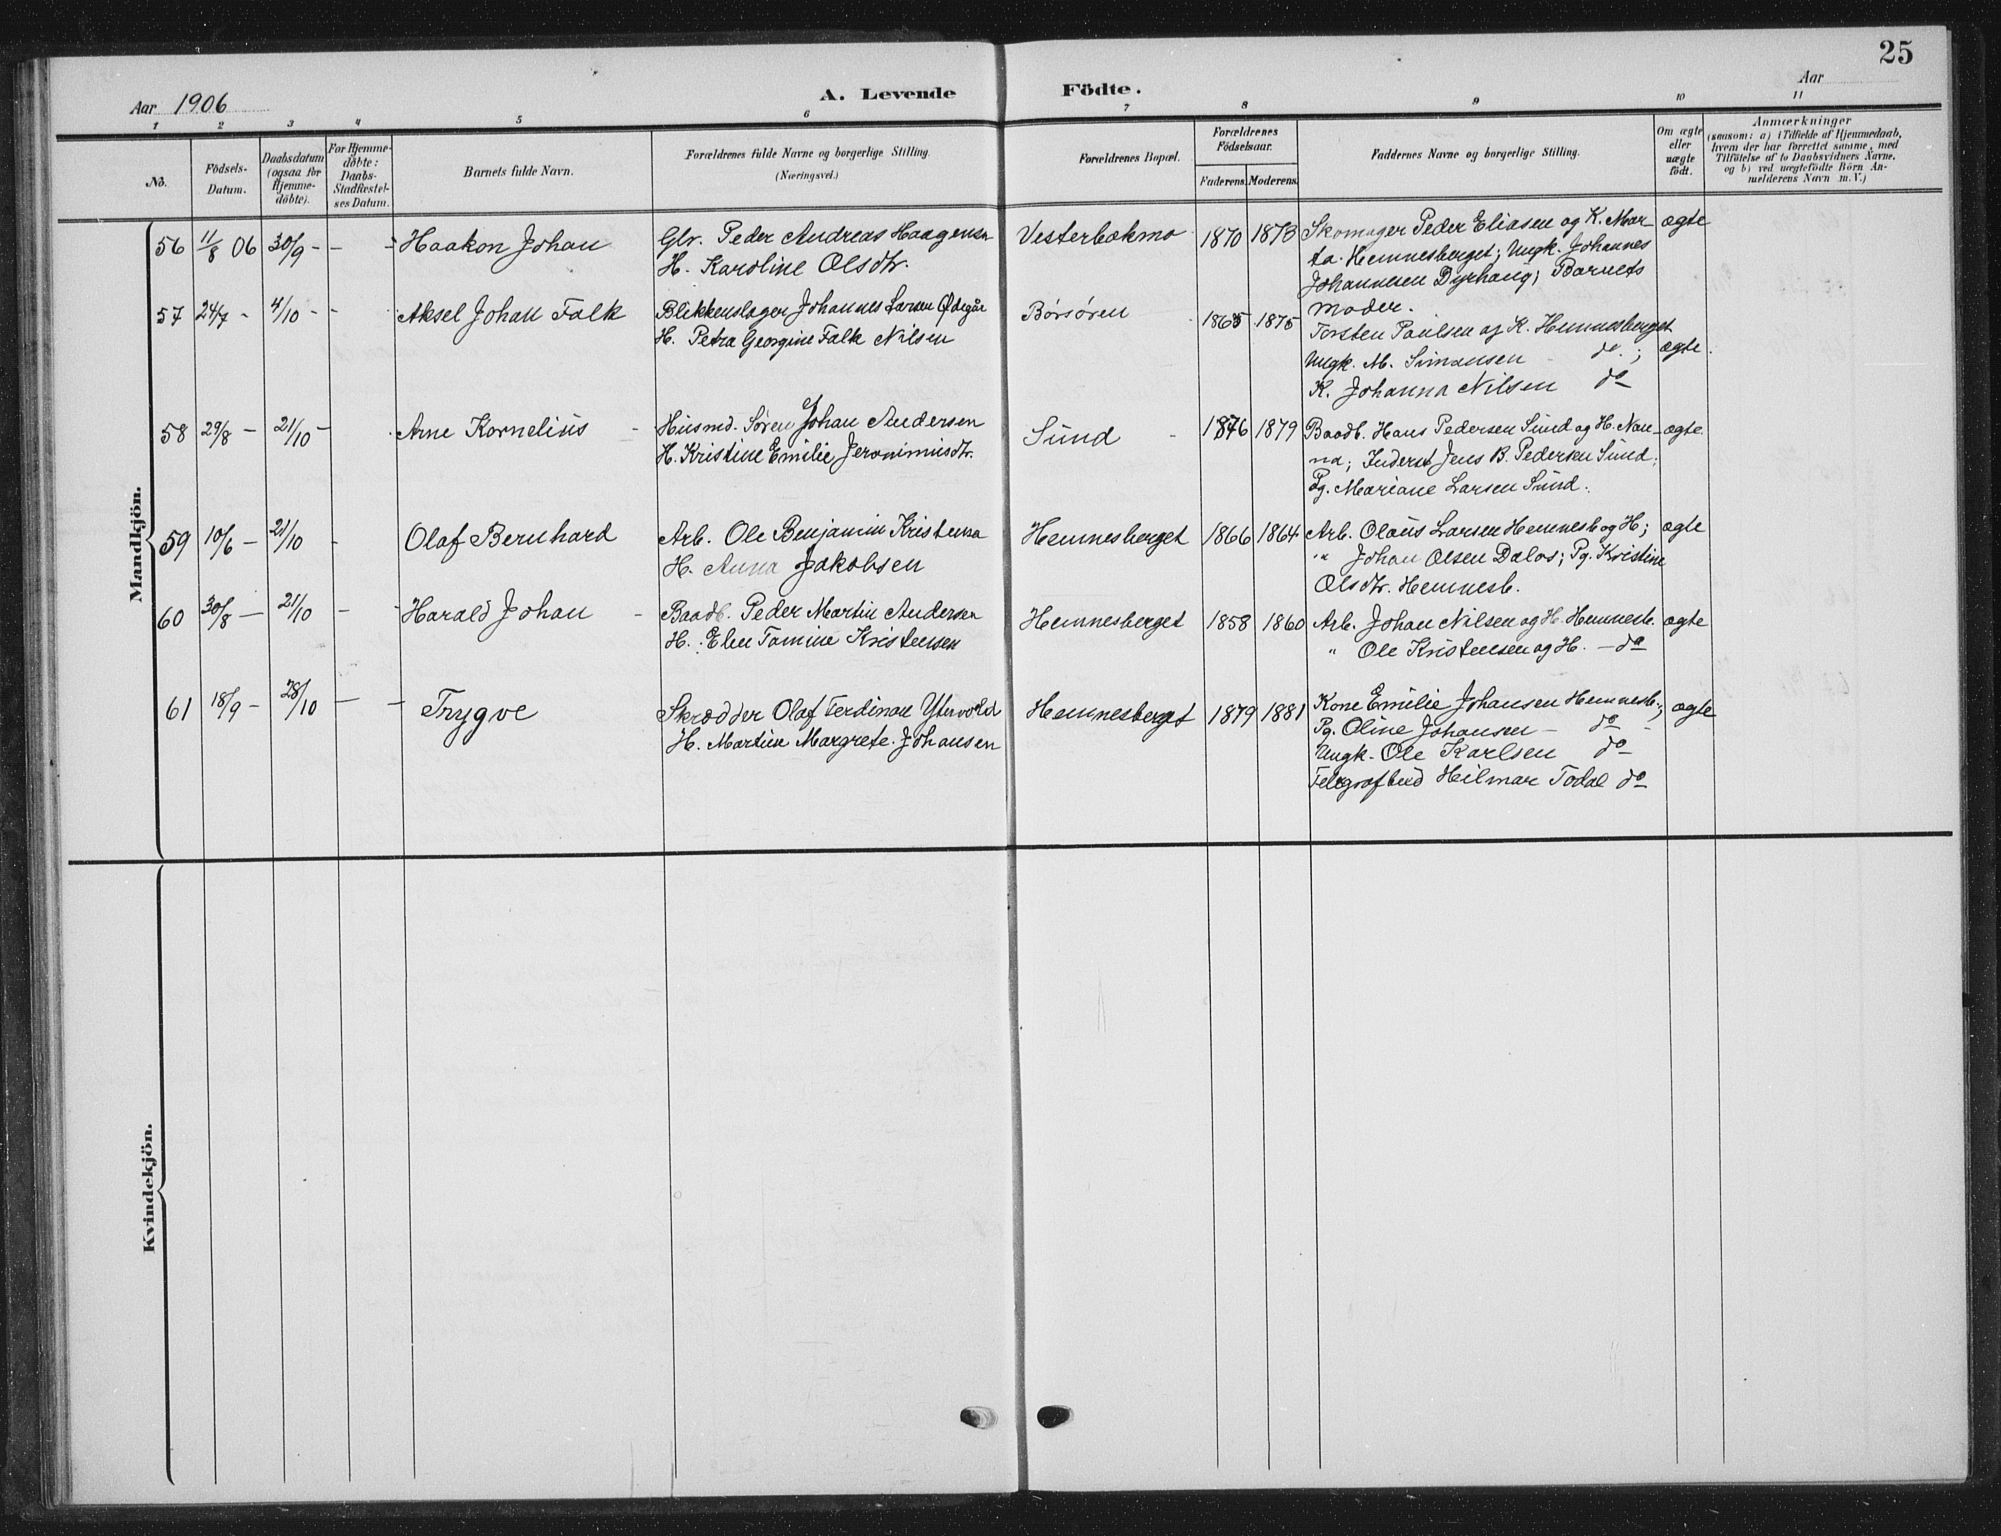 25
Aar 1906
A. Levende Födte.
Aar
1 2 3 4 5 6 7 8 9 10 11
No.
Födsels-
Datum.
Daabsdatum
(ogsaa for
Hjemme-
döbte).
For Hjemme-
döbte:
Daabs-
Stadfæstel-
ses Datum.
Barnets fulde Navn.
Forældrenes fulde Navne og borgerlige Stilling.
(Næringsvei.)
Forældrenes Bopæl.
Forældrenes
Födselsaar.
Faderens. Moderens.
Faddernes Navne og borgerlige Stilling.
Om ægte
eller
uægte
födt.
Anmærkninger
(saasom: a) i Tilfælde af Hjemmedaab,
hvem der har forrettet samme, med
Tilföielse af to Daabsvidners Navne,
og b) ved uægtefödte Börn An-
melderens Navn m. V.)
Mandkjön.
56 11/8 06 30/9 - - - Haakon Johan
Glv. Peder Andreas Haagensen
H. Karoline Olsdtr.
Vesterbækmo 1870 1873
Skomager Peder Eliasen og K. Mar-
ta Hemnesberget; Ungk. Johannes
Johannesen Dyrhaug; Barnets
moder.
ægte
57 24/7 - 4/10 - - Aksel Johan Falk
Blikkenslager Johannes Larsen Ødegår
H. Petra Georgine Falk Nilsen
Börsören 1865 1875
Torsten Paulsen og K. Hemnesberget
Ungk. M. Simonsen - do. ;
K. Johanna Nilsen do
ægte.
58 29/8 - 21/10 - Arne Kornelius -
Husmd. Sören Johan Andersen
H. Kristine Emilie Jeronimusdtr.
Sund - 1876 1879
Baadb. Hans Pedersen Sund og H. Nan-
na; Inderst Jens B. Pedersen Sund;
Pg. Mariane Larsen Sund.
ægte.
59 10/6 - 21/10 - Olaf Bernhard
Arb. Ole Benjamin Kristensen
H. Anna Jakobsen
Hemnesberget 1866 1864
Arb. Olaus Larsen Hemnesb og H;
" Johan Olsen Dalos; Pg. Kristine
Olsdtr. Hemnesb.
ægte
60 30/8 - 21/10 - - Harald Johan -
Baadb. Peder Martin Andersen
H. Elen Tomine Kristensen
Hemnesberget 1858 1860
Arb. Johan Nilsen og H. Hemnesb.
" Ole Kristensen og H. - do
ægte
61 18/9 - 28/10 - - Trygve
Skrædder Olaf Ferdinan Ytervold
H. Martine Margrete Johansen
Hemnesberget 1879 1881
Kone Emilie Johansen Hemnesb.;
Pg. Oline Johansen - do -
Ungk. Ole Karlsen do
Telegrafbud Hilmar Todal do
ægte
Kvindekjön.